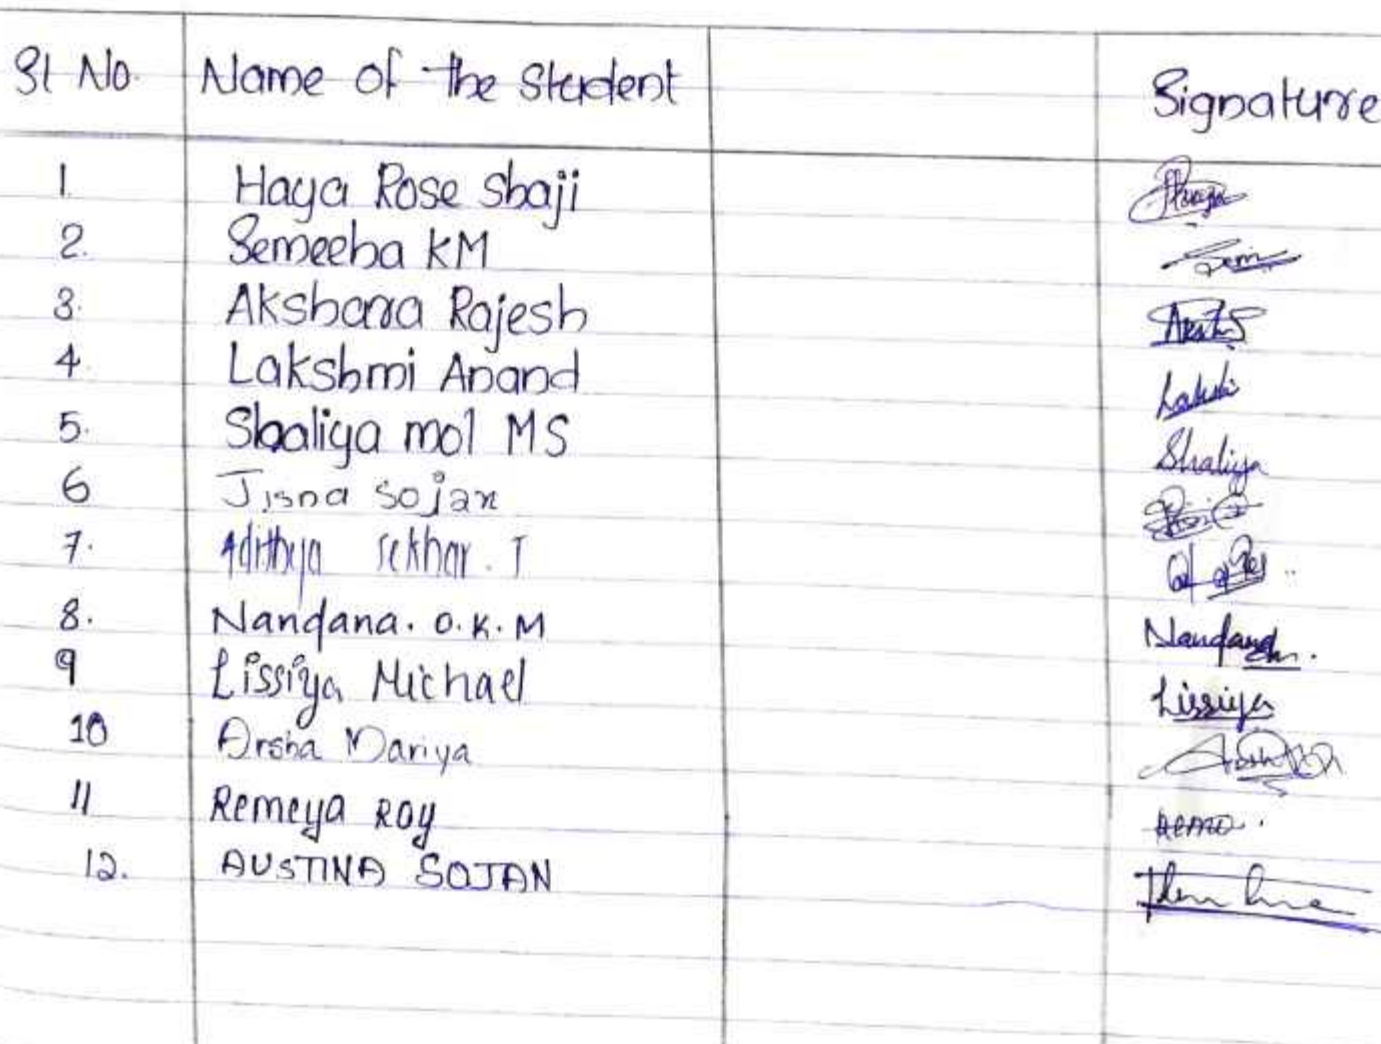 Sl No. Name of the Student Signature
1. Haya Rose Shaji
2. Semeeha KM
3. Akshara Rajesh
4. Lakshmi Anand Lakshi
5. Shaliya mol MS Shaliya
6 Jisna Sojan
7. Adithya Sekhar. T
8. Nandana. O.K.M Nandana.
9 Lissiya Michael Lissiya
10 Arsha Mariya
11 Remeya Roy
12. AUSTINA SOJAN